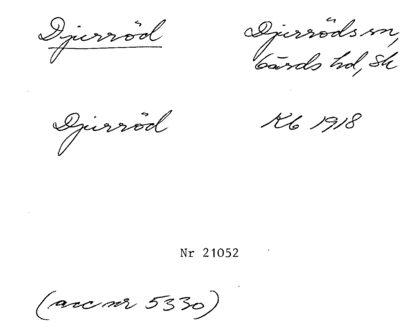 Djurröd Djurröds sn,
Gärds hd, Sk
Djurröd Kb 1918
Nr 21052
(acc nr 5330)